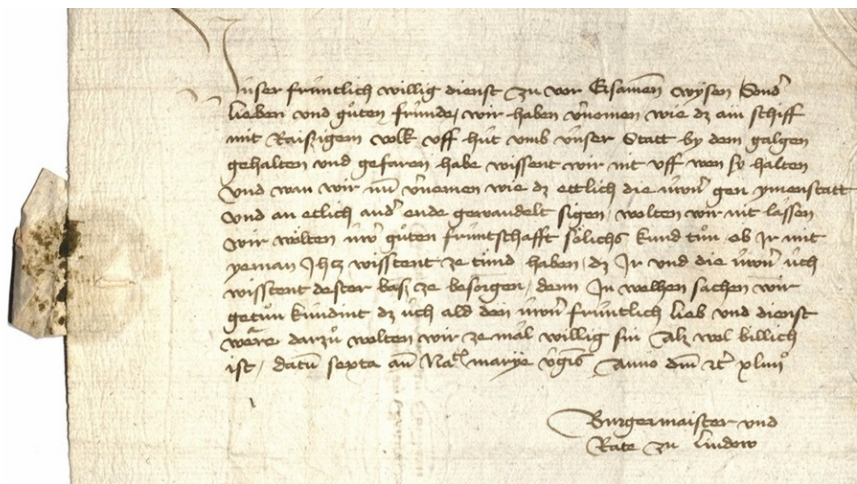 Unser früntlich willig dienst zu vor Ersamen wysen Sond'
lieben und gůten fründe, wir haben v'nomen wie dz ain schiff
mit Raisigem volk uff hüt umb unser Statt by dem galgen
gehalten und gefaren habe wissent wir nit uff wen sy halten
Und wan wir nu v'nomen wie dz ettlich die üwer gen ymenstatt
Und an etlich and' ende gewandelt sigen, wolten wir nit lassen
wir wölten üwer gůten früntschafft sölichs kund tůn, ob Jr mit
yeman Jchtz wisstent ze tůnd haben, dz Jr und die üwern üch
wisstent dester bas ze besorgen, denn Jn welhen sachen wir
getůn kündint dz üch ald den üwern früntlich lieb und dienst
wäre darzů wolten wir ze mal willig sin Alz wol billich
ist, datu sexta an Nat marye v'gis Anno dm rc xliiiio
Burgermaister und
Rate zu Lindow